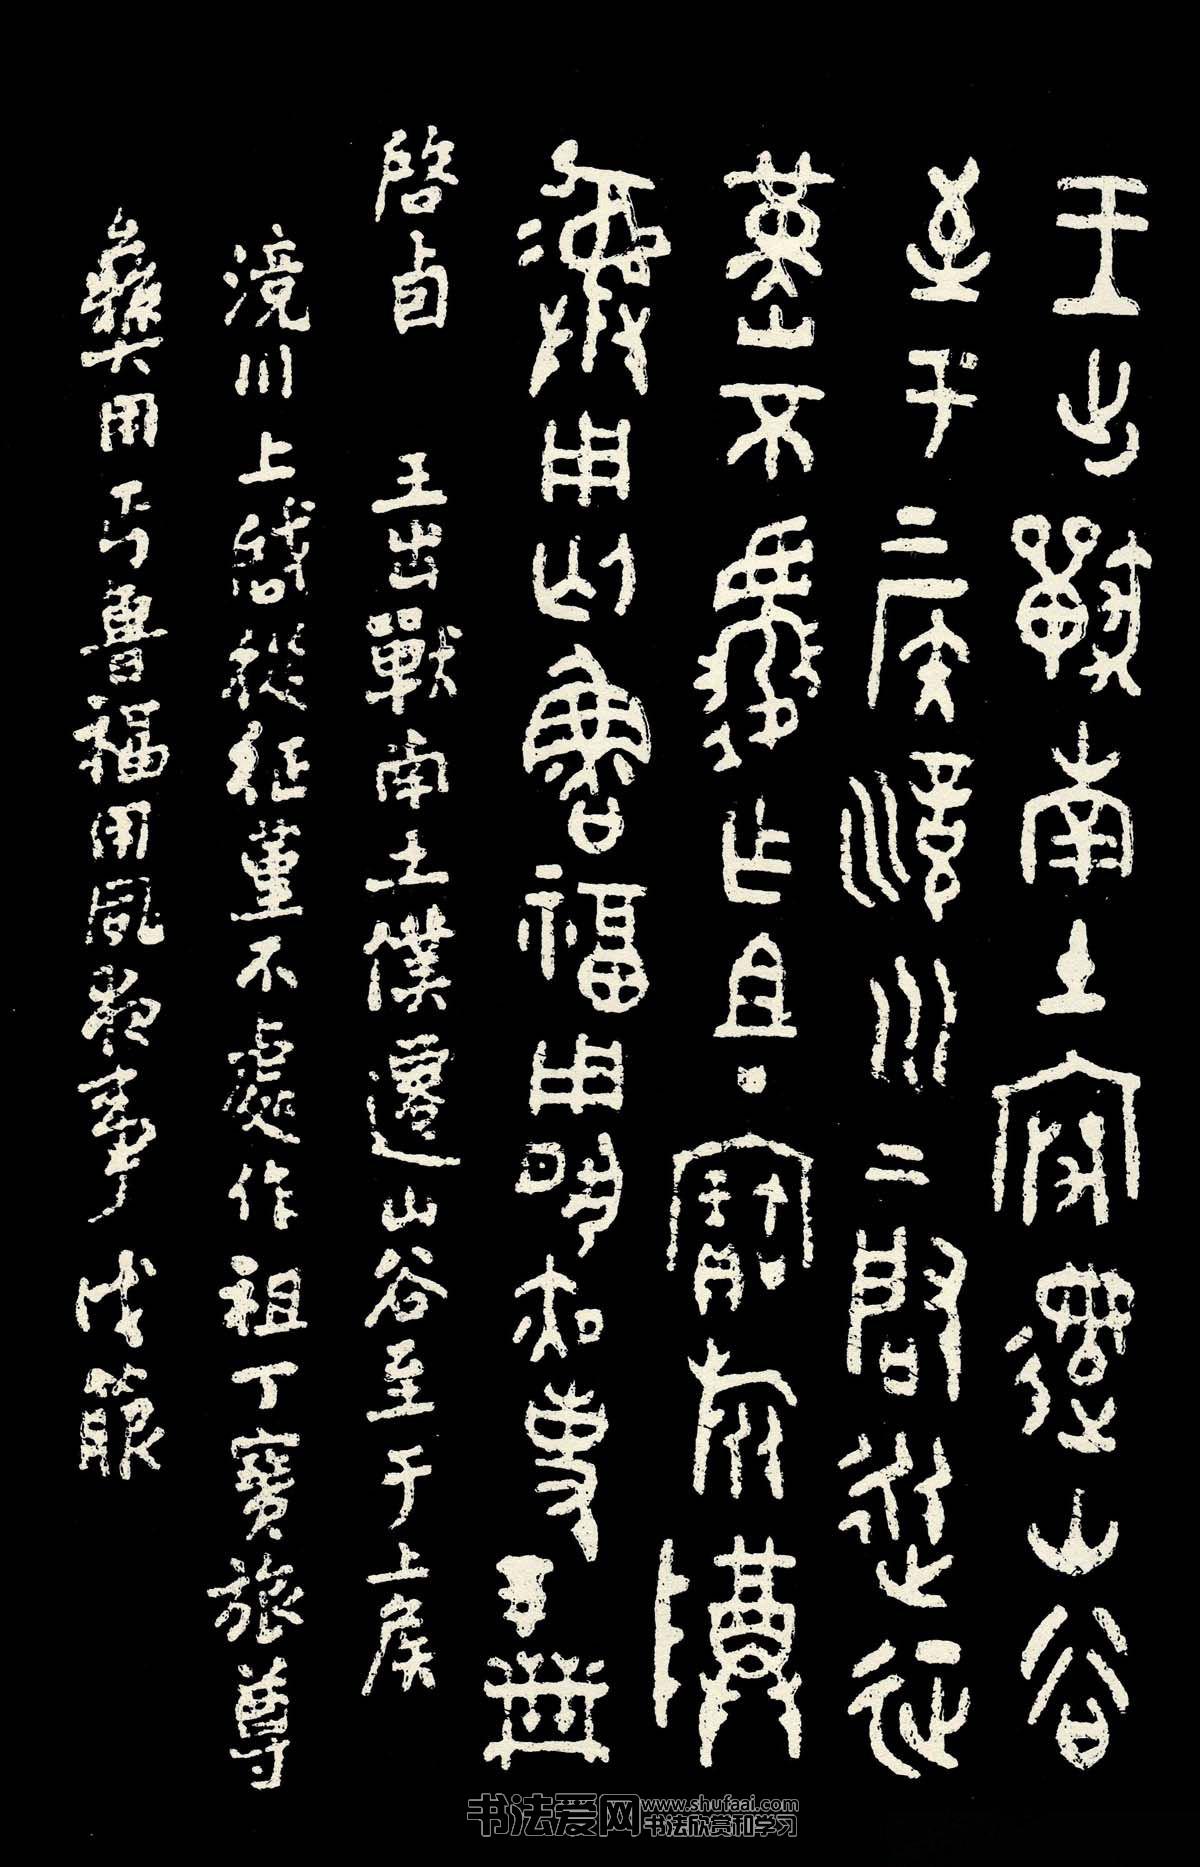 王出獸南土山谷
至于上侯滰川上啟從征
堇不作且丁寶旅尊
彝用匄魯福用夙夜事戉箙
啓卣 王出獸南土僕遷山谷至于上侯
滰川上啟從征堇不處作祖丁寶旅尊
彝用丐魯福用夙夜事 戉箙
书法爱网 www.shufaai.com
书法欣赏和学习